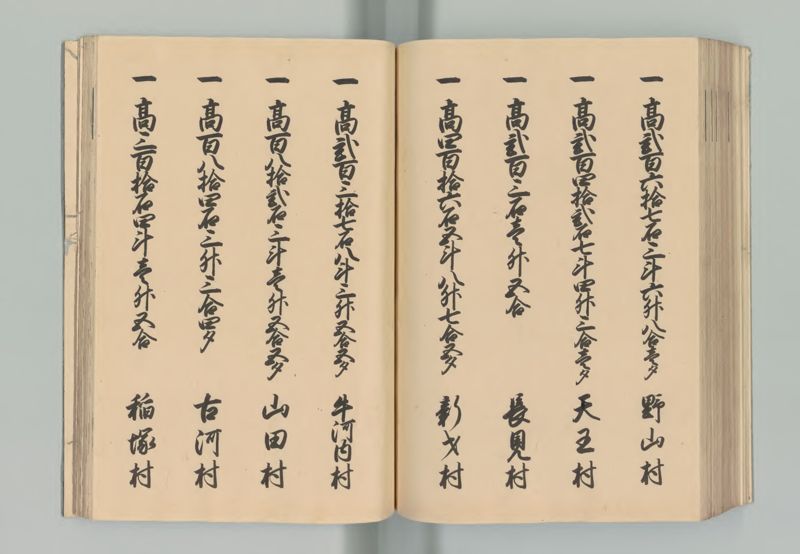 一 高弐百六拾七石三斗六升八合壱夕 野山村
一 高弐百四拾弐石七斗四升三合壱夕 天王村
一 高弐百三石壱升五合 長見村
一 高四百拾六石五斗八升七合五夕 新才村
一 高弐百三拾七石八斗三升五合五夕 牛河内村
一 高百八拾弐石三斗壱升五合五夕 山田村
一 高百八拾四石三升三合四夕 古河村
一 高三百拾石四斗壱升五合 稲塚村